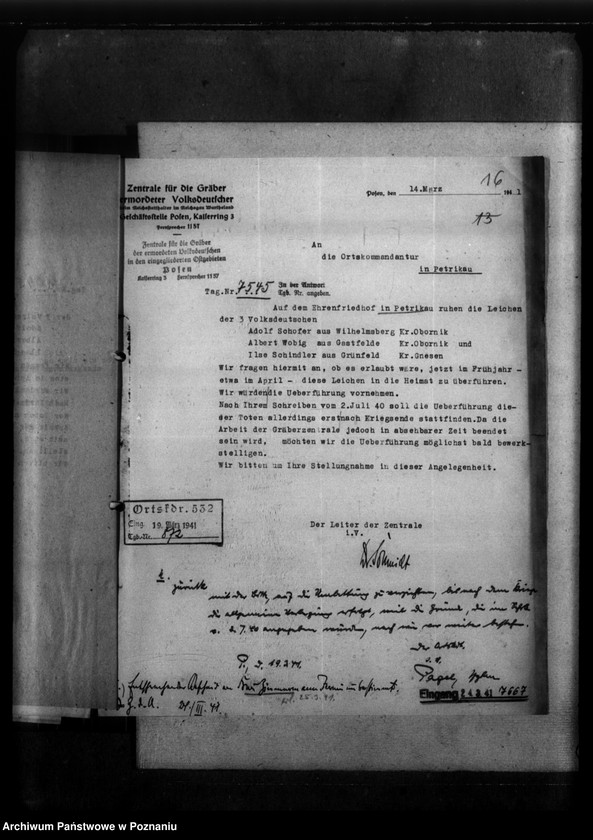 Zentrale für die Gräber
ermordeter Volksdeutscher
beim Reichsstatthalter im Reichsgau Wartheland
Geschäftsstelle Posen, Kaiserring 3
Fernsprecher 1157
Zentrale für die Gräber
der ermordeten Volksdeutschen
in den eingegliederten Ostgebieten
Posen
Kaiserring 3 Fernsprecher 1157
Posen, den 14.März 1941
16
13
An
die Ortskommandantur
in Petrikau
Tag.Nr. 7545 In der Antwort
Tgb. Nr. angeben.
Auf dem Ehrenfriedhof in Petrikau ruhen die Leichen
der 3 Volksdeutschen
Adolf Schofer aus Wilhelmsberg Kr.Obornik
Albert Wobig aus Gastfelde Kr.Obornik und
Ilse Schindler aus Grünfeld Kr.Gnesen
Wir fragen hiermit an, ob es erlaubt wäre, jetzt im Frühjahr -
etwa im April - diese Leichen in die Heimat zu überführen.
Wir würden die Ueberführung vornehmen.
Nach Ihrem Schreiben vom 2.Juli 40 soll die Ueberführung die-
ser Toten allerdings erstnach Kriegsende stattfinden.Da die
Arbeit der Gräberzentrale jedoch in absehbarer Zeit beendet
sein wird, möchten wir die Ueberführung möglichst bald bewerk-
stelligen.
Wir bitten um Ihre Stellungnahme in dieser Angelegenheit.
Ortskdr. 532
Eing. 19. März 1941
Tgb.-Nr. 872
Der Leiter der Zentrale
i.V.
Dr Schmidt
zurück
mit der Bitte, auf die Umbettung zu verzichten, bis nach dem Kriege
die allgemeine Umbettung erfolgt, weil die Gründe, die im
v. 2.7.40 angegeben wurden, nach wie vor weiter bestehen.
P., d. 19.3.41.
Eingang 24.3.41 7667
25.3.41.
Z. d. A. 24./III. 41.
Archiwum Państwowe w Poznaniu